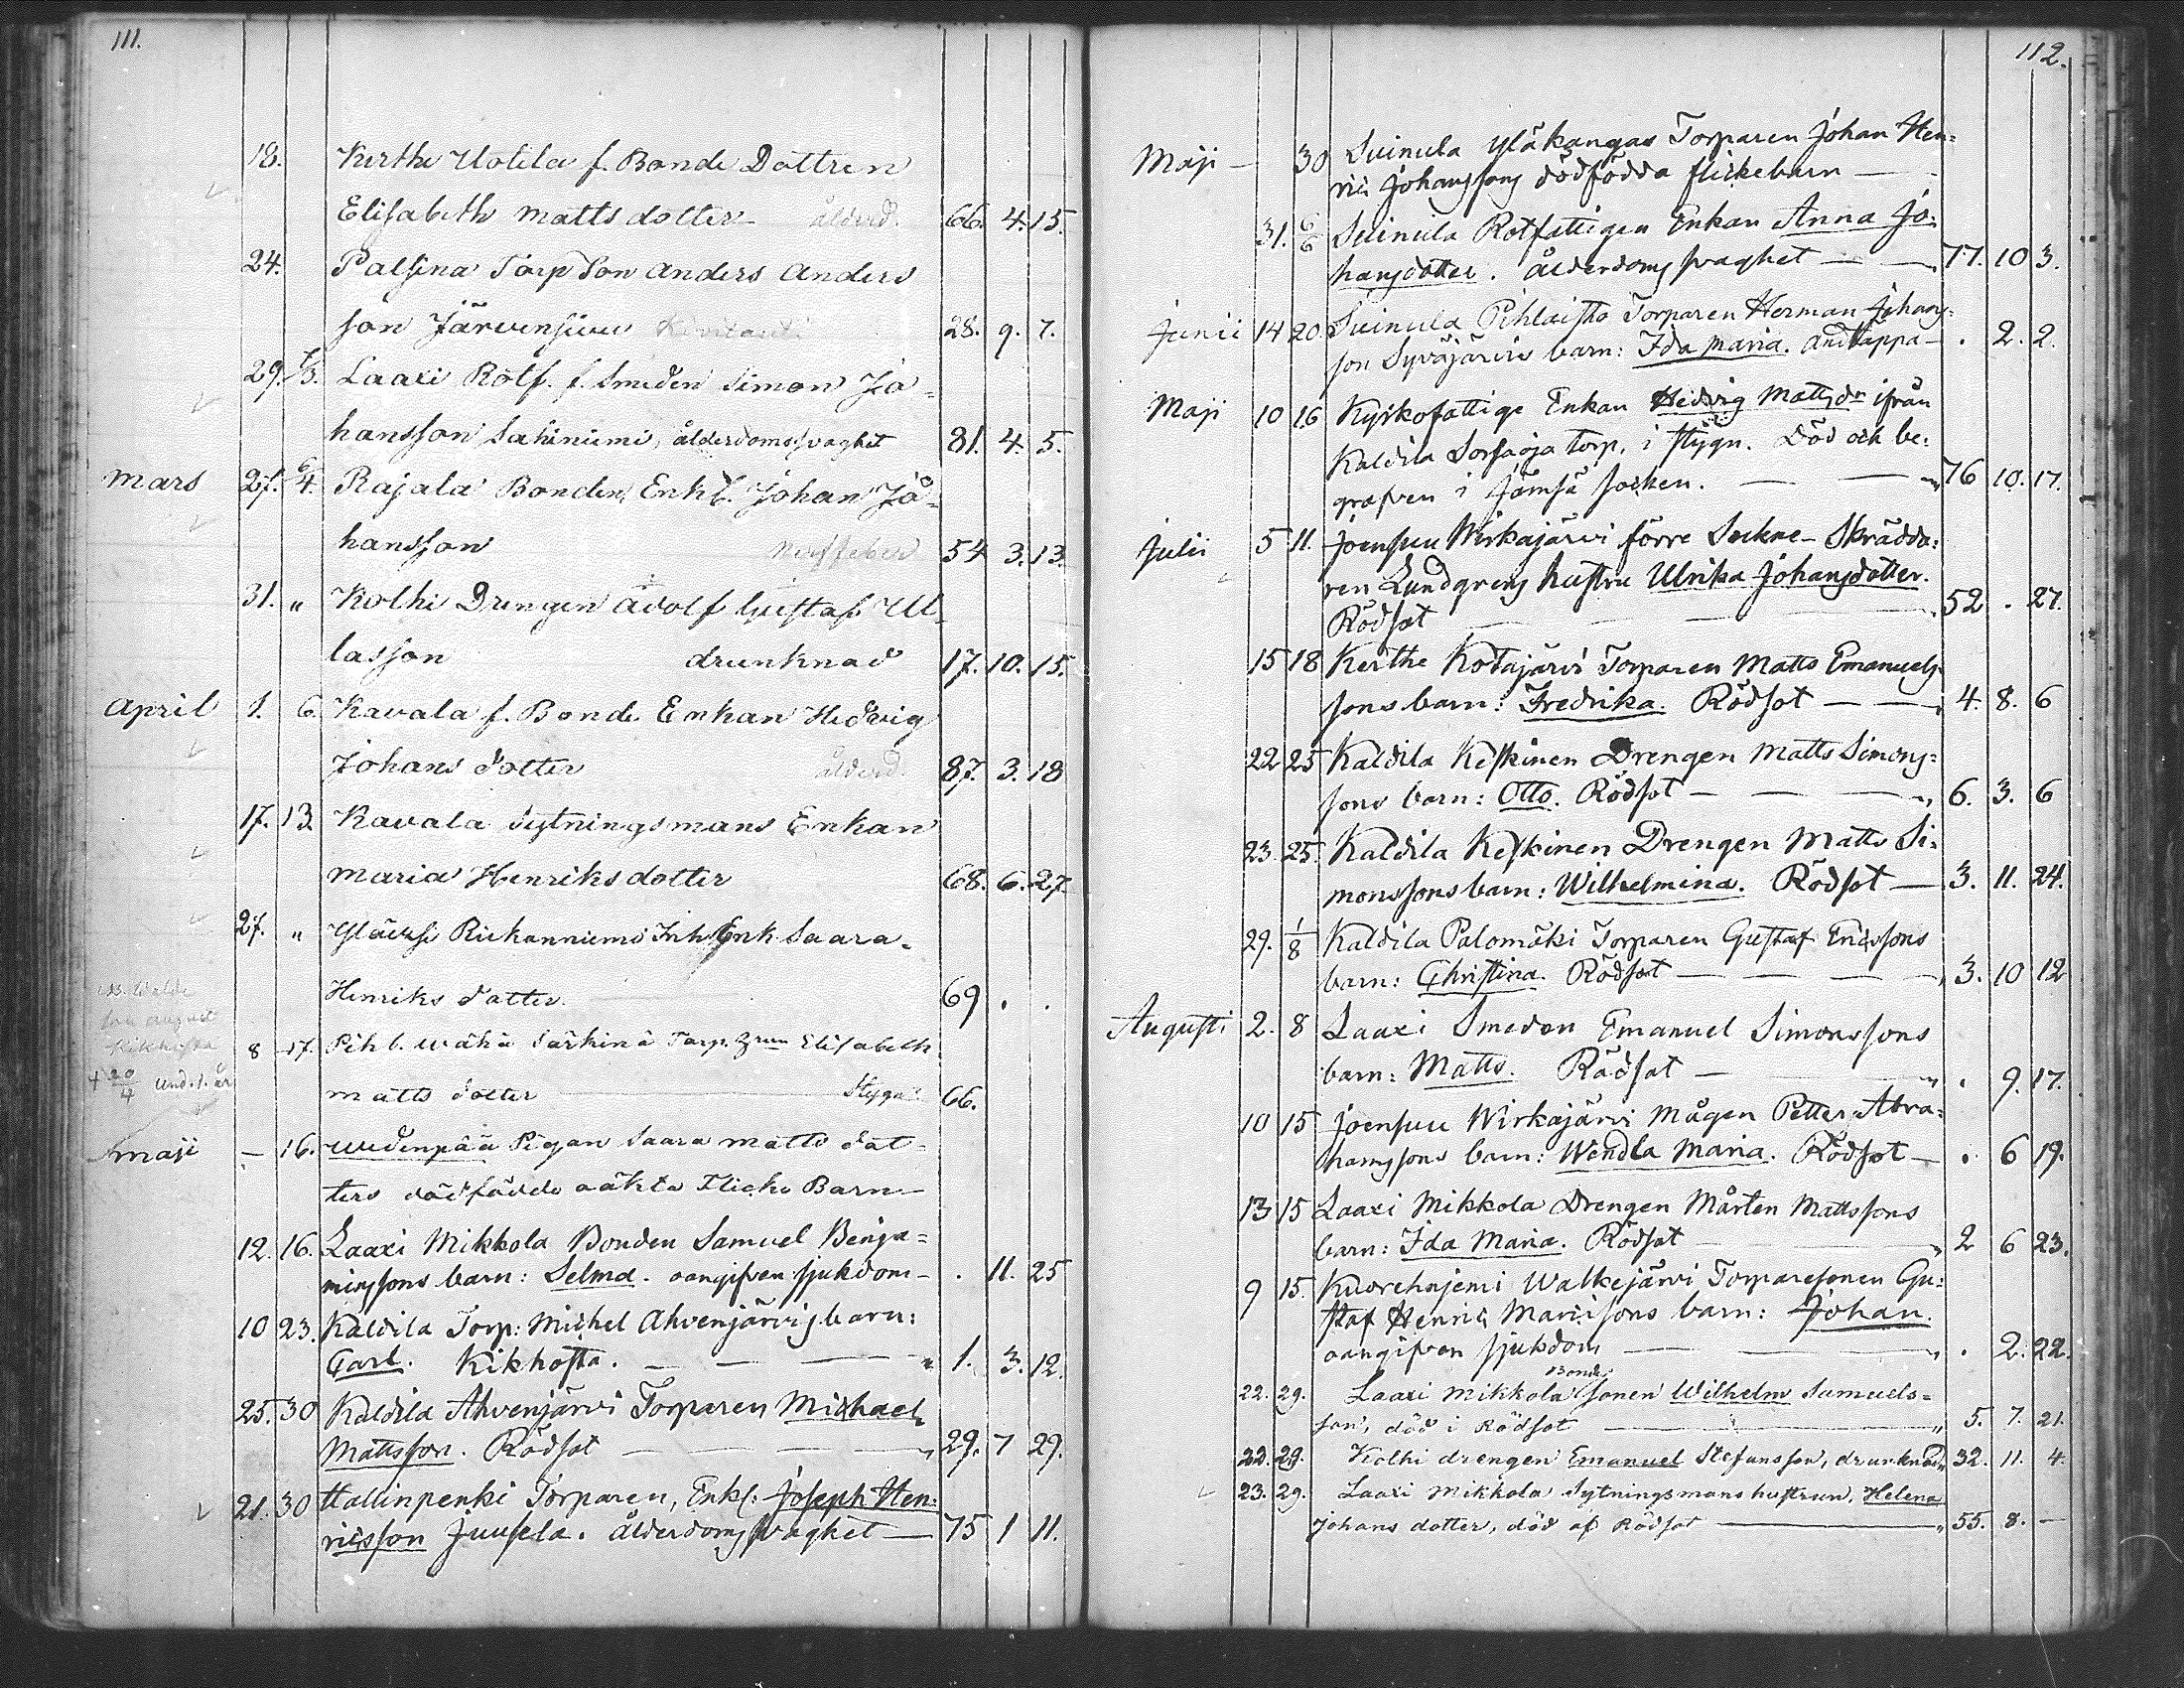 111.
18. Kerthe Uotila f. Bonde Dottren
Elisabeth Mattsdotter ålderd. 66. 4. 15.
24. Palsina Torp Son Anders Anders
son Järvensivu 28. 9. 7.
29. /3. Laaxi Rotf. f. Smeden Simon Jo=
hansson Sahiniemi, ålderdomssvaghet 81. 4. 5.
Mars 27. 6/4. Rajala Bonden, Enkl. Johan Jo=
hansson Nerffeber 54 3. 13.
31. " Kolhi Drengen Adolf Gustaf Ul
lasson drunknad 17. 10. 15.
April 1. 6. Kavala f. Bonde Enkan Hedvig
Johans dotter ålderd. 87. 3. 18
17. 13 Kavala Sytningsmans Enkan
Maria Henriks dotter 68. 6. 27
27. " Yläaxi Riekanniemi Inh. Enk Saara
Henriks dotter. 69 . .
8 17. Pihl. Wähä Särkinä Torp. Elisabeth
Matts dotter Stygn 66.
Kikhosta
+ 20/4 und. 1. år
Maji — 16. Wedenpää Pigan Saara Matts dot=
ters dödfödde oäkta Flicke Barn
12. 16. Laaxi Mikkola Bonden Samuel Benja=
minssons barn: Selma. oangifven sjukdom — . 11. 25
10 23. Kaldila Torp: Michel Ahvenjärvis barn:
Carl. Kikhosta. — — " 1. 3. 12.
25. 30 Kaldila Ahvenjärvi Torparen Michael
Mattsson. Rödsot — — " 29. 7 29.
21. 30 Hallinpenki Torparen, Enkl: Joseph Hen=
ricsson Juusela. ålderdomssvaghet — 75 1 11.
112.
Maji — 30 Suinula Yläkangas Torparen Johan Hen=
ric Johanssons dödfödda flickebarn —
31. 6/6 Suinula Rotfattigen Enkan Anna Jo=
hansdotter. ålderdomssvaghet — " 77. 10 3.
Junii 14 20. Suinula Pihlaisto Torparen Herman Johans=
son Syväjärvis barn: Ida Maria. Andtäppa — . 2. 2.
Maji 10 16 Kyrkofattige Enkan Hedvig Mattsdr ifrån
Kaldila Sorsaoja torp, i stygn. Död och be=
grafven i Jämsä socken. — — " 76 10. 17.
Julii 5 11. Joensuu Wirkajärvi förre Sockne-Skrädda=
ren Lundgrens hustru Ulrika Johansdotter.
Rödsot — — — " 52 . 27.
15 18 Kerthe Kotajärvi Torparen Matts Emanuels=
sons barn: Fredrika. Rödsot — — " 4. 8. 6
22 25 Kaldila Keskinen Drengen Matts Simons=
sons barn: Otto. Rödsot — — " 6. 3. 6
23. 25. Kaldila Keskinen Drengen Matts Si=
monssons barn: Wilhelmina. Rödsot — 3. 11. 24.
29. 1/8 Kaldila Palomäki Torparen Gustaf Ericssons
barn: Christina. Rödsot — — — " 3. 10 12
Augusti 2. 8 Laaxi Smeden Emanuel Simonssons
barn: Matts. Rödsot — " . 9. 17.
10 15 Joensuu Wirkajärvi Mågen Petter Abra=
hamssons barn: Wendla Maria. Rödsot — . 6 19.
13 15 Laaxi Mikkola Drengen Mårten Mattssons
barn: Ida Maria. Rödsot — " 2 6 23.
9 15. Kuorehnjemi Walkejärvi Torparesonen Gu=
staf Henric Mariisons barn: Johan.
oangifven sjukdom — — " . 2. 22.
22. 29. Laaxi Mikkola Bonde sonen Wilhelm Samuels=
son, död i Rödsot — " 5. 7. 21.
22. 29. Kolhi drengen Emanuel Stefansson, drunknad " 32. 11. 4.
23. 29. Laaxi Mikkola Sytningsmans hustrun, Helena
Johans dotter, död af Rödsot — " 55. 8. —